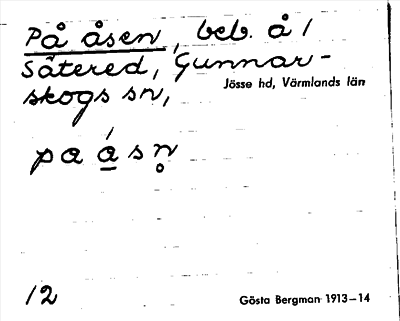 På åsen, beb. å 1
Sätered, Gunnar-
skogs sn,
Jösse hd, Värmlands län
pa ása̲ sn̥
12
Gösta Bergman 1913–14